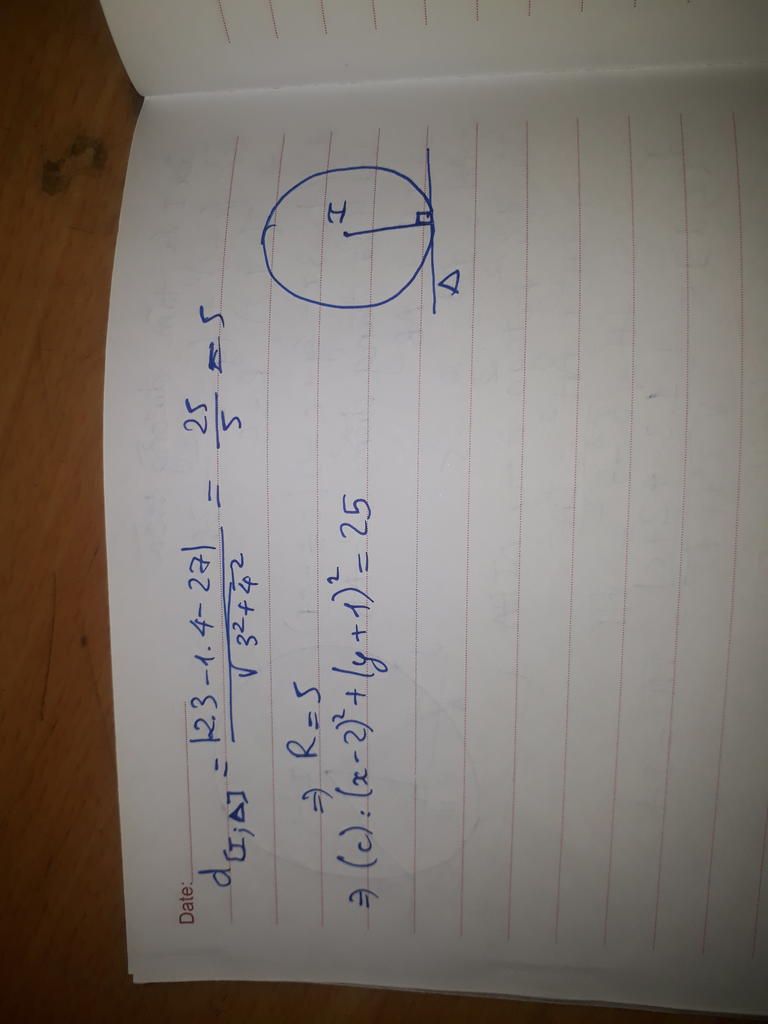 Date:
d[I;Δ] = |2.3-1.4-27| / √3²+4² = 25/5 = 5
⇒ R = 5
⇒ (c): (x-2)² + (y+1)² = 25
I
Δ